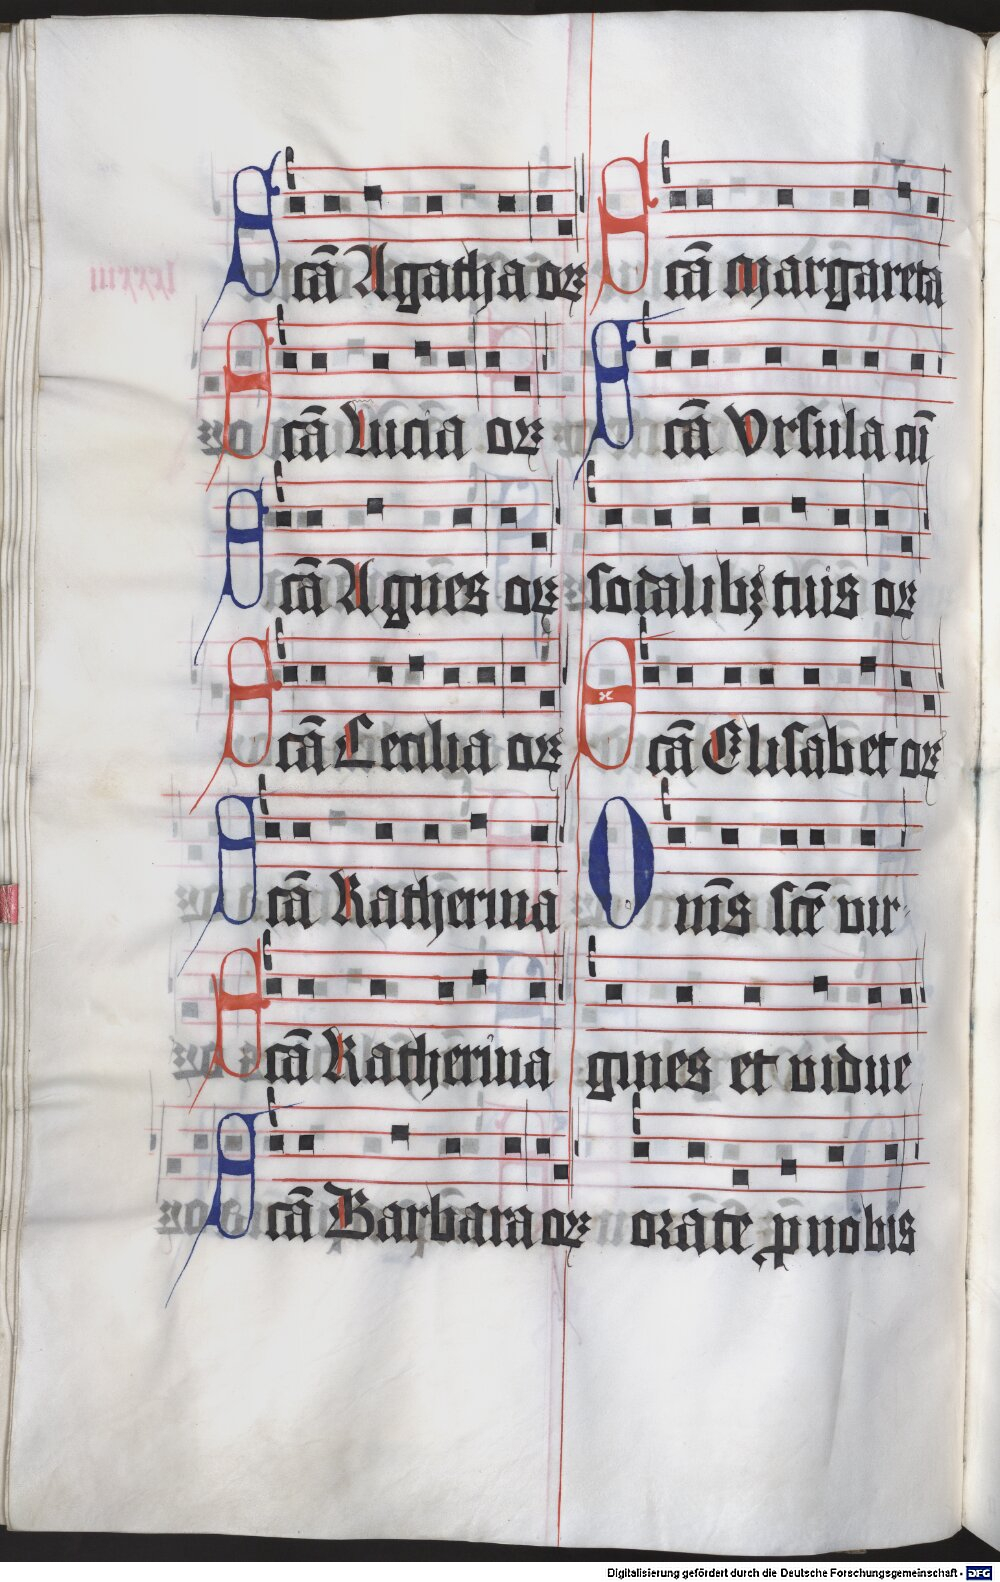 Scā Agatha or
Scā Lucia or
Scā Agnes or
Scā Cecilia or
Scā Katherina
Scā Katherina
Scā Barbara or
Scā Margareta
Scā Vrsula cū
sodalibꝫ tuis or
Scā Elisabet or
Om̄s scē vir
gines et vidue
orate p nobis
Digitalisierung gefördert durch die Deutsche Forschungsgemeinschaft - DFG